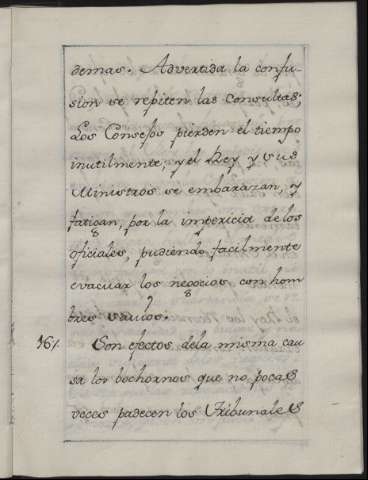 demas. Advertida la confu-
sion se repiten las consultas;
Los Consejos pierden el tiempo
inutilmente, y el Rey y sus
Ministros se embarazan, y
fatigan, por la impericia de los
oficiales, pudiendo facilmente
evacuar los negocios con hom
bres savios.
16/. Son efectos dela misma cau
sa los bochornos que no pocas
veces padecen los Tribunales